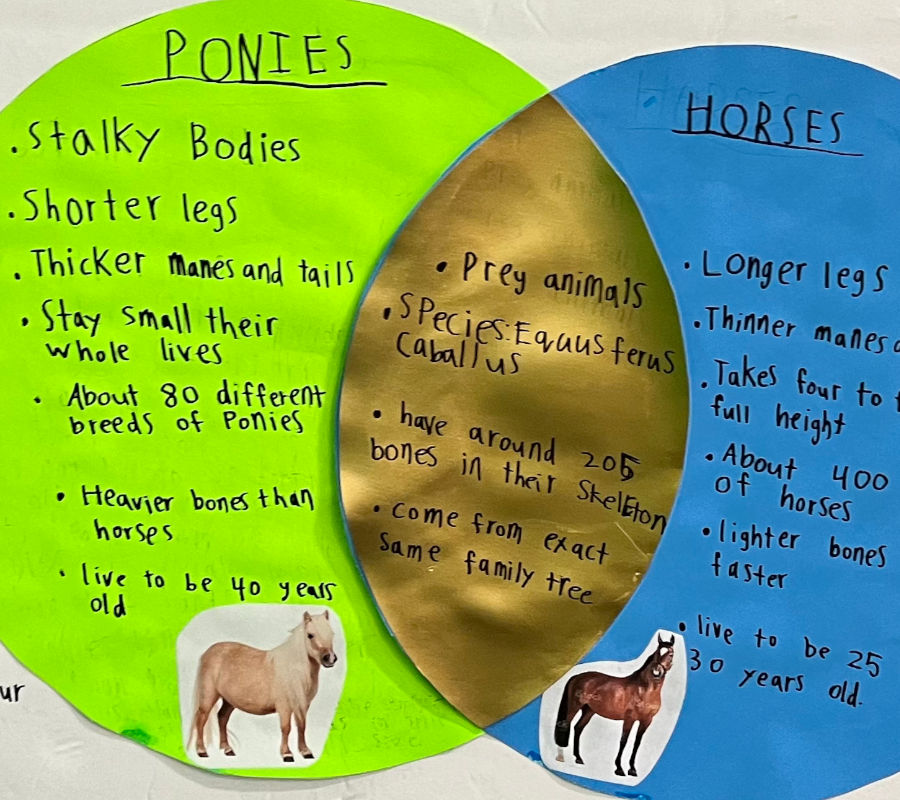 PONIES
. Stalky Bodies
. Shorter legs
. Thicker manes and tails
. Stay small their
whole lives
. About 80 different
breeds of Ponies
. Heavier bones than
horses
. live to be 40 years
old
. Prey animals
. Species: Equus ferus
Caballus
. have around 205
bones in their Skeleton
. come from exact
same family tree
HORSES
. Longer legs
. Thinner manes
. Takes four to
full height
. About 400
of horses
. lighter bones
faster
. live to be 25
30 years old.
ur